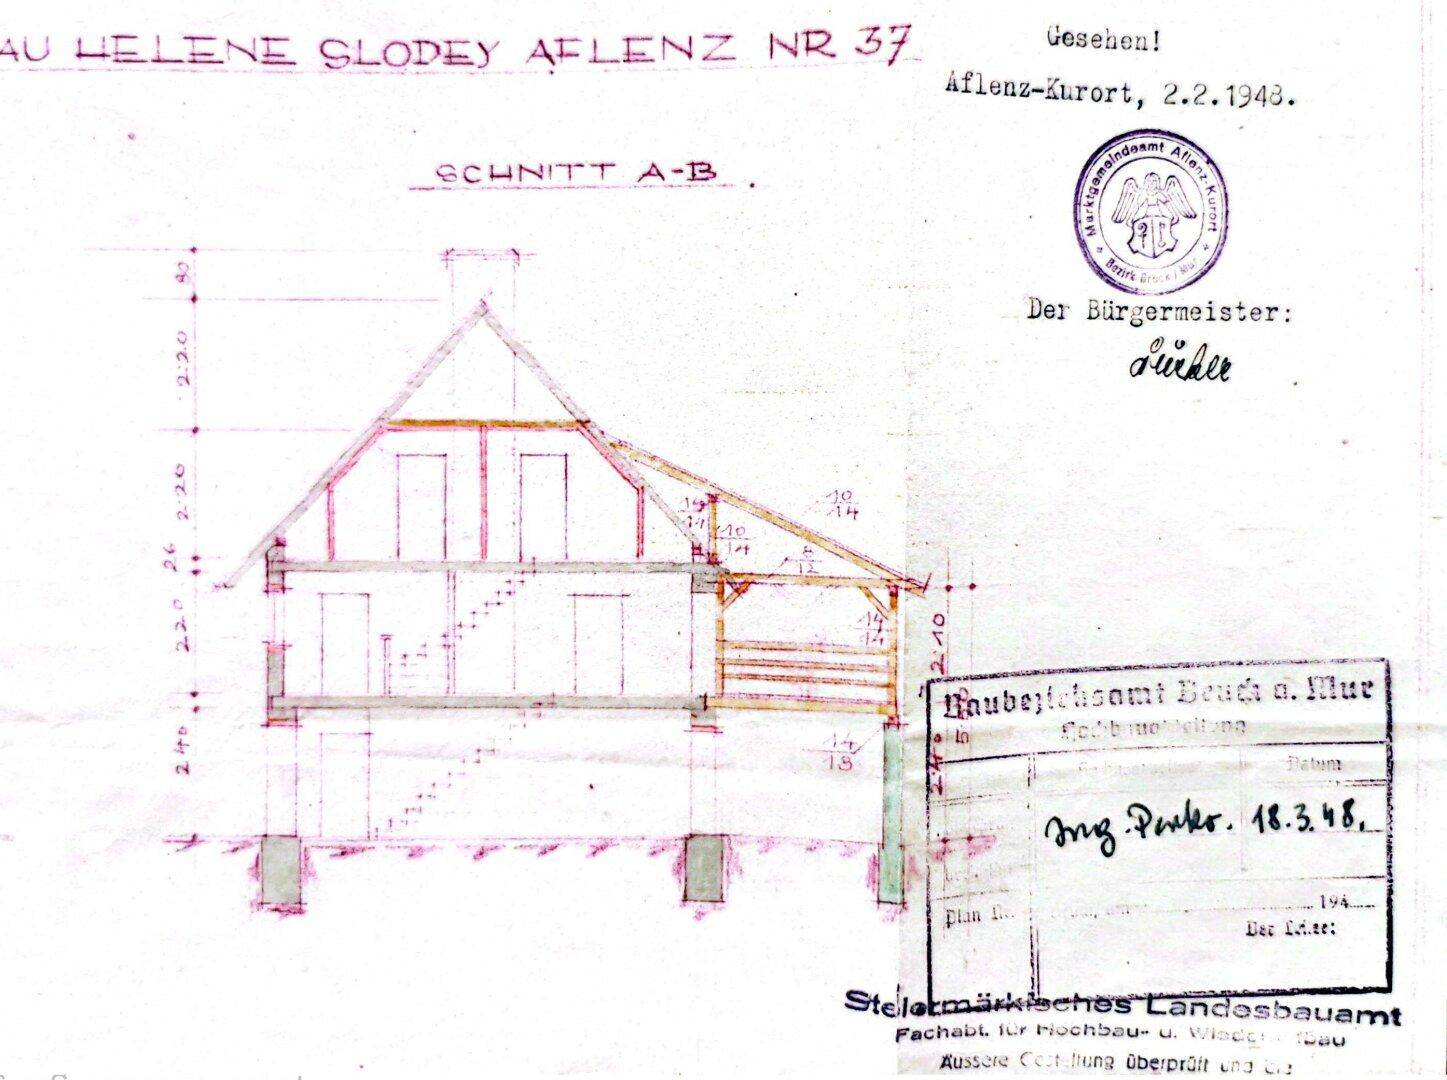 AU HELENE SLODEY AFLENZ NR 37
Gesehen!
Aflenz-Kurort, 2.2.1948.
Marktgemeindeamt Aflenz-Kurort
Bezirk Bruck / Mur
Der Bürgermeister:
SCHNITT A-B
80
2.20
2.20
26
2.20
2.40
10/14
10/14
8/12
14/14
14/18
2.10
2.40
Baubezirksamt Bruck a. Mur
Hochbauabteilung
Datum
Ing. 18.3.48.
Plan Nr.
194
Der Leiter:
Steiermärkisches Landesbauamt
Fachabt. für Hochbau- u.
Äussere Gestaltung überprüft und